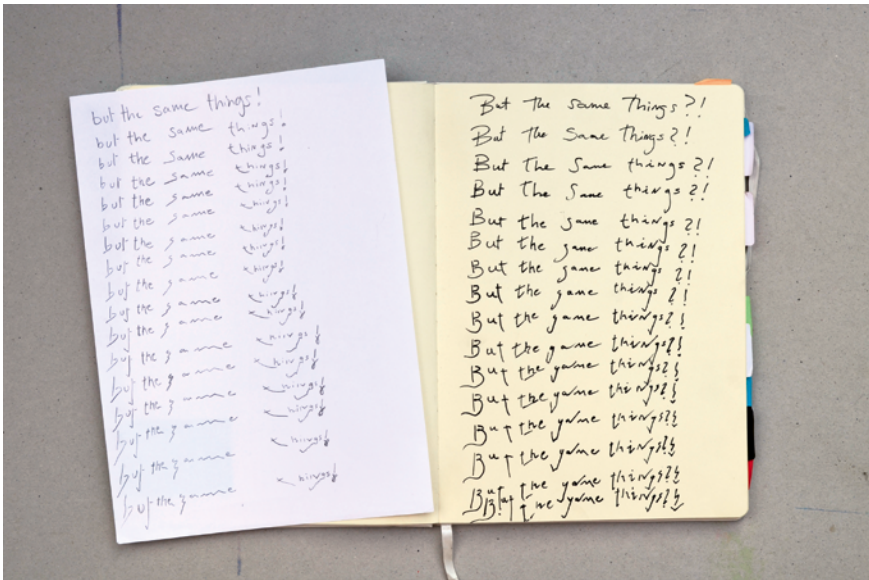 but the same things!
but the same things!
but the same things!
but the same things!
but the same things!
but the same things!
but the same things!
but the same things!
but the same things!
but the same things!
but the same things!
but the same things!
but the same things!
but the same things!
but the same things!
but the same things!
but the same things!
But The Same Things?!
But The Same Things?!
But The Same things?!
But The Same things?!
But the same things?!
But the same things?!
But the same things?!
But the game things?!
But the game things?!
But the game things?!
But the game things?!
But the game things?!
But the yame things?!
But the yame things?!
But the yame things?!
But the yame things?!